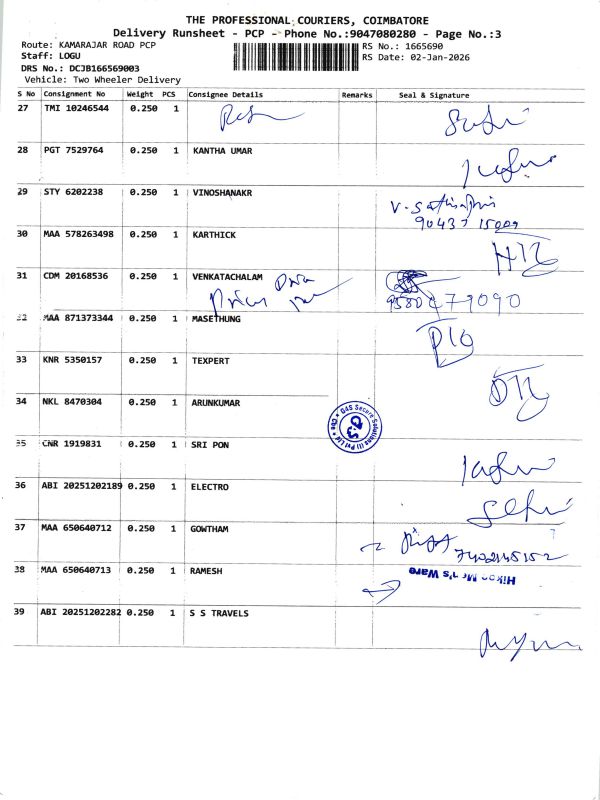 THE PROFESSIONAL COURIERS, COIMBATORE
Delivery Runsheet - PCP - Phone No.:9047080280 - Page No.:3
Route: KAMARAJAR ROAD PCP RS No.: 1665690
Staff: LOGU RS Date: 02-Jan-2026
DRS No.: DCJB166569003
Vehicle: Two Wheeler Delivery
S No Consignment No Weight PCS Consignee Details Remarks Seal & Signature
27 TMI 10246544 0.250 1
28 PGT 7529764 0.250 1 KANTHA UMAR
29 STY 6202238 0.250 1 VINOSHANAKR
90437 15009
30 MAA 578263498 0.250 1 KARTHICK
31 CDM 20168536 0.250 1 VENKATACHALAM
32 MAA 871373344 0.250 1 MASETHUNG
33 KNR 5350157 0.250 1 TEXPERT
34 NKL 8470304 0.250 1 ARUNKUMAR
G4S Secure Solutions (I) Pvt Ltd * Cbe *
35 CNR 1919831 0.250 1 SRI PON
36 ABI 20251202189 0.250 1 ELECTRO
37 MAA 650640712 0.250 1 GOWTHAM
38 MAA 650640713 0.250 1 RAMESH
39 ABI 20251202282 0.250 1 S S TRAVELS